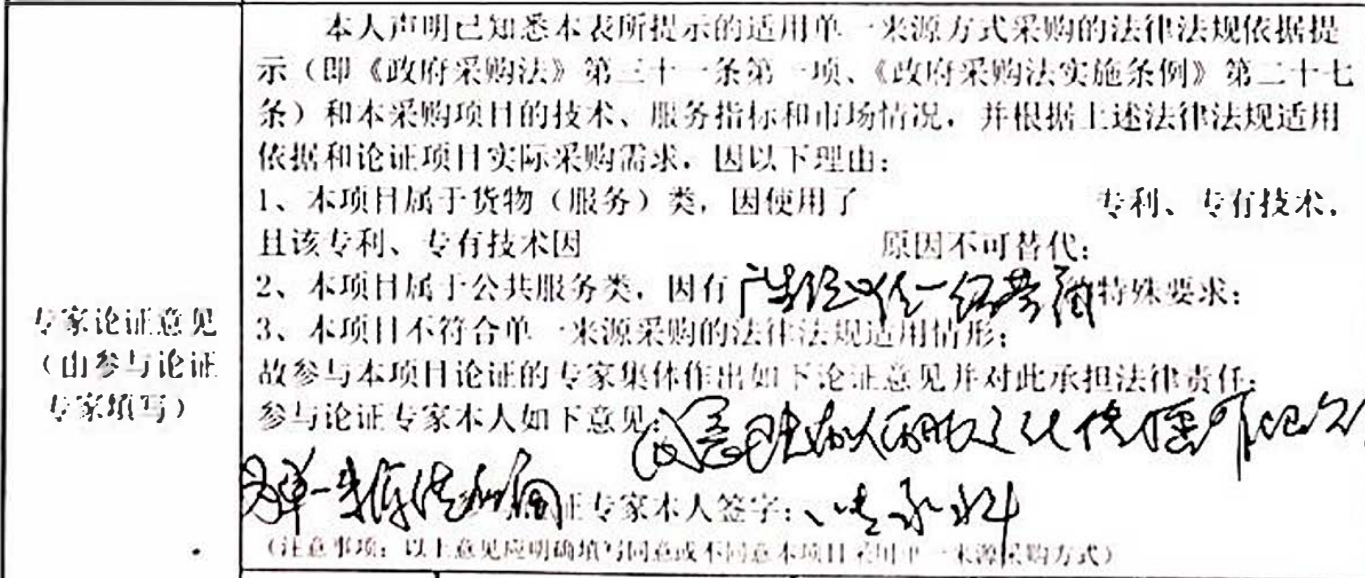 本人声明已知悉本表所提示的适用单一来源方式采购的法律法规依据提
示（即《政府采购法》第三十一条第一项、《政府采购法实施条例》第二十七
条）和本采购项目的技术、服务指标和市场情况，并根据上述法律法规适用
依据和论证项目实际采购需求，因以下理由：
1、本项目属于货物（服务）类，因使用了 专利、专有技术，
且该专利、专有技术因 原因不可替代；
2、本项目属于公共服务类，因有 特殊要求；
3、本项目不符合单一来源采购的法律法规适用情形；
故参与本项目论证的专家集体作出如下论证意见并对此承担法律责任：
参与论证专家本人如下意见：同意
单一来源
证专家本人签字：
（注意事项：以上意见应明确填写同意或不同意本项目采用单一来源采购方式）
专家论证意见
（由参与论证
专家填写）